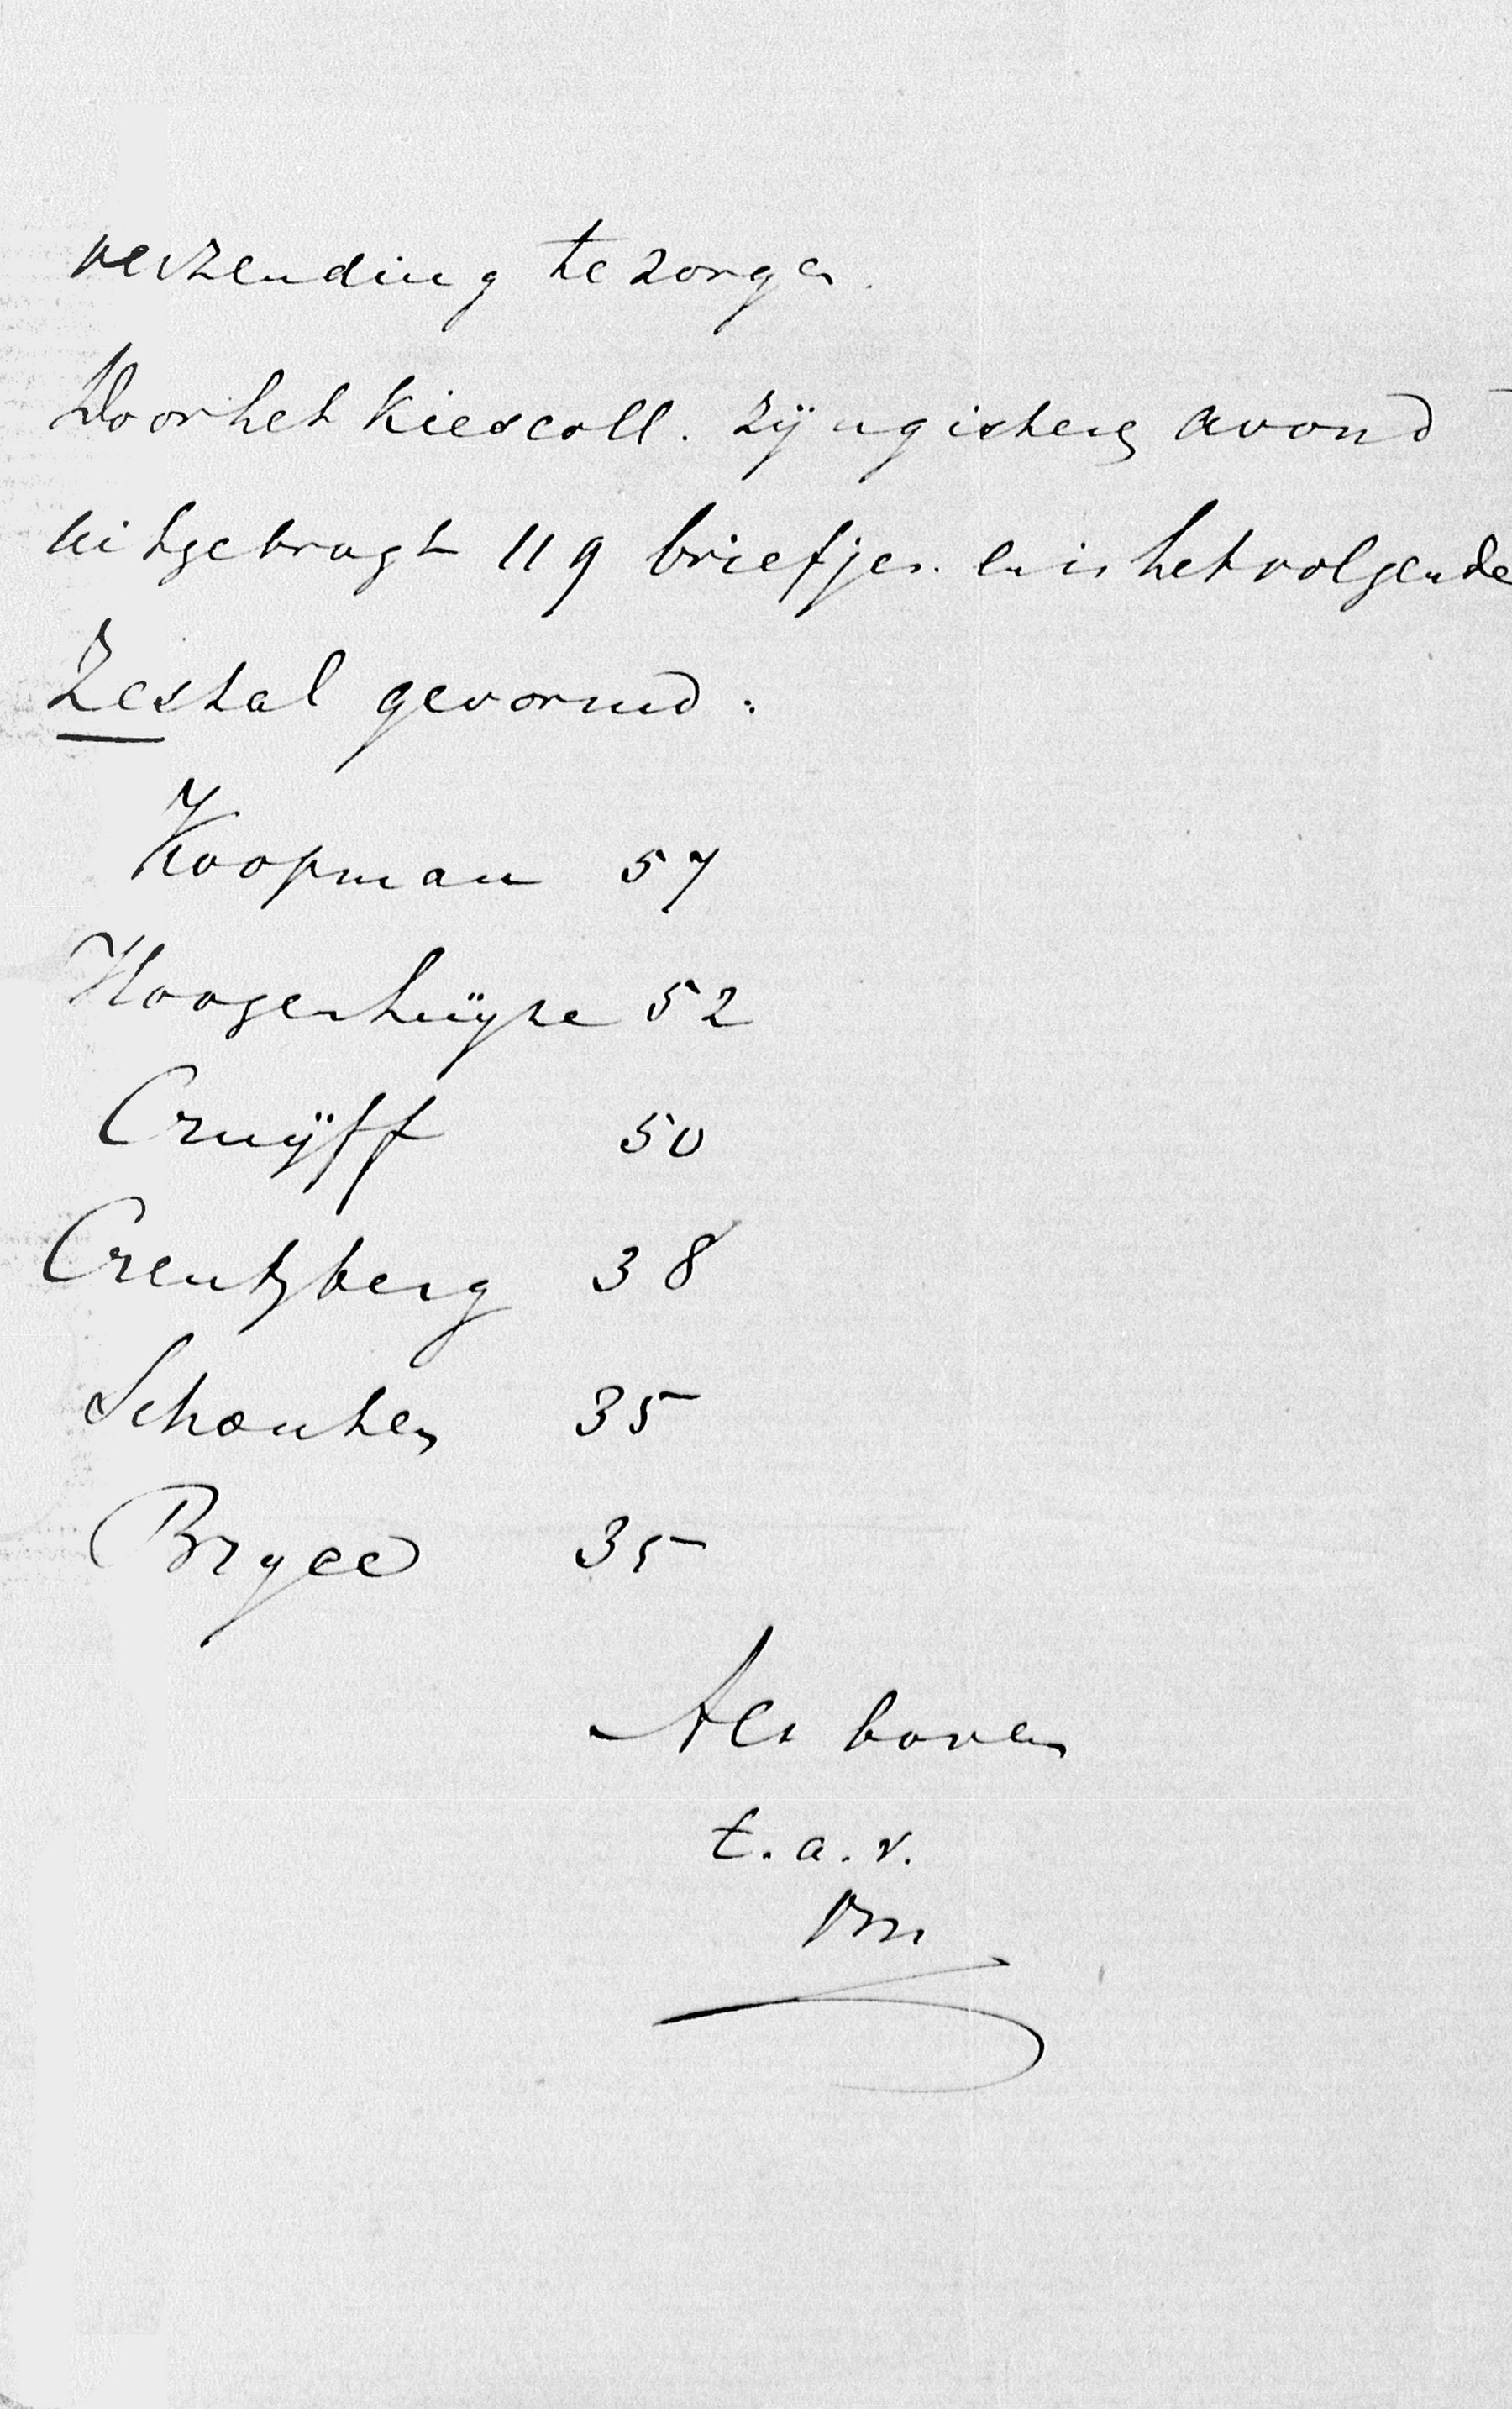 verzending te zorgen.
Door het Kiescoll. zijn gisteren avond
uitgebragt 119 briefjes. en is het volgende
Zestal gevormd:
Koopman 57
Hoogenhuyze 52
Cruijff 50
Creutzberg 38
Schouten 35
Bryce 35
Als boven
t.a.v.